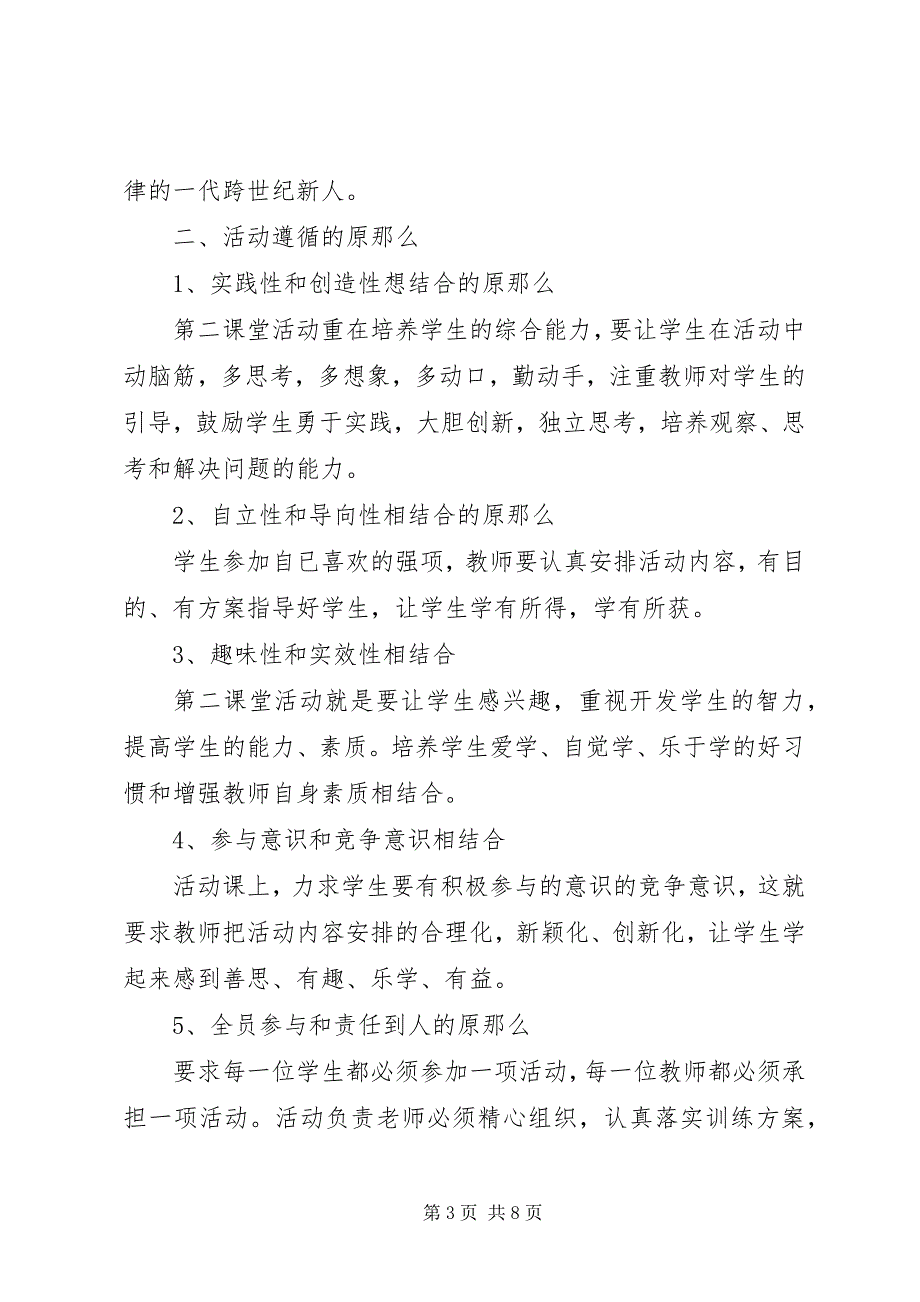 律的一代跨世纪新人。
二、活动遵循的原那么
1、实践性和创造性想结合的原那么
第二课堂活动重在培养学生的综合能力，要让学生在活动中
动脑筋，多思考，多想象，多动口，勤动手，注重教师对学生的
引导，鼓励学生勇于实践，大胆创新，独立思考，培养观察、思
考和解决问题的能力。
2、自立性和导向性相结合的原那么
学生参加自已喜欢的强项，教师要认真安排活动内容，有目
的、有方案指导好学生，让学生学有所得，学有所获。
3、趣味性和实效性相结合
第二课堂活动就是要让学生感兴趣，重视开发学生的智力，
提高学生的能力、素质。培养学生爱学、自觉学、乐于学的好习
惯和增强教师自身素质相结合。
4、参与意识和竞争意识相结合
活动课上，力求学生要有积极参与的意识的竞争意识，这就
要求教师把活动内容安排的合理化，新颖化、创新化，让学生学
起来感到善思、有趣、乐学、有益。
5、全员参与和责任到人的原那么
要求每一位学生都必须参加一项活动，每一位教师都必须承
担一项活动。活动负责老师必须精心组织，认真落实训练方案，
第 3 页 共 8 页